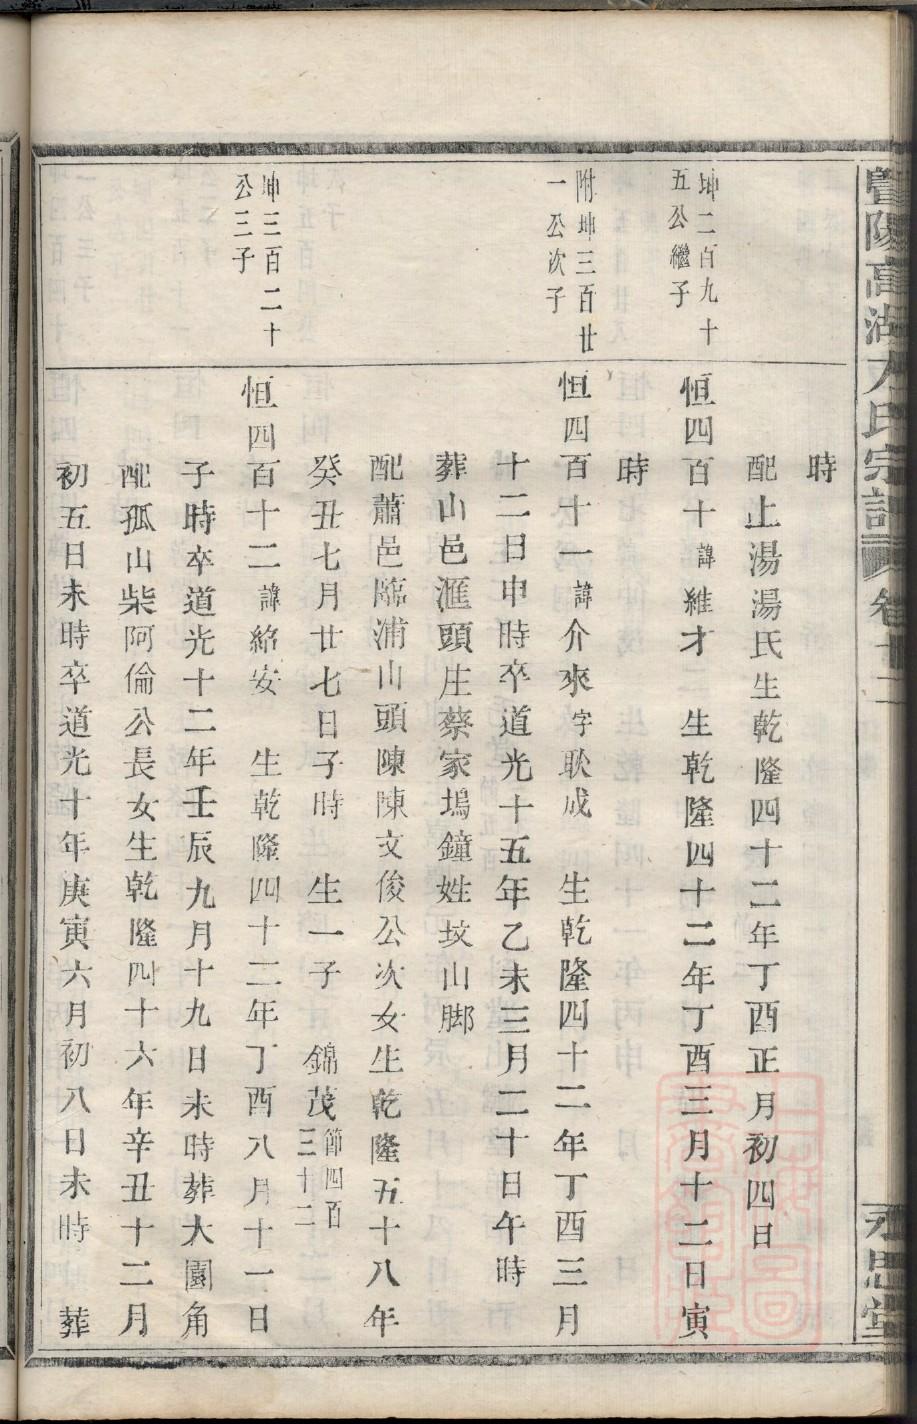 暨陽高湖方氏宗譜 卷十二 永思堂
時
配上湯湯氏生乾隆四十二年丁酉正月初四日
坤二百九十五公繼子
恒四百十諱維才 生乾隆四十二年丁酉三月十二日寅
時
附坤三百廿一公次子
恒四百十一諱介來字耿成 生乾隆四十二年丁酉三月
十二日申時卒道光十五年乙未三月二十日午時
葬山邑滙頭庄蔡家塢鐘姓坟山脚
配蕭邑臨浦山頭陳陳文俊公次女生乾隆五十八年
癸丑七月廿七日子時 生一子 錦茂節四百三十二
坤三百二十公三子
恒四百十二諱紹安 生乾隆四十二年丁酉八月十一日
子時卒道光十二年壬辰九月十九日未時葬大園角
配孤山柴阿倫公長女生乾隆四十六年辛丑十二月
初五日未時卒道光十年庚寅六月初八日未時 葬